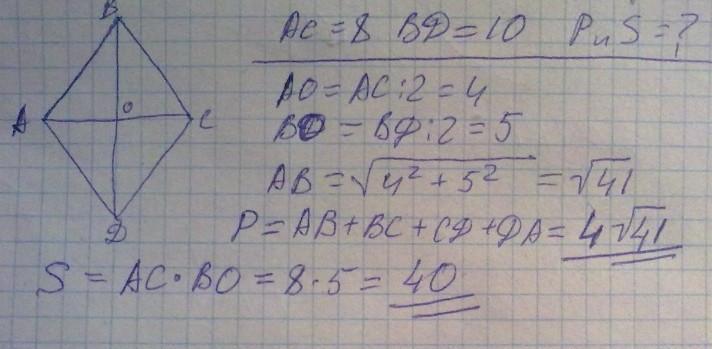 B
A O C
D
AC = 8 BD = 10 P и S = ?
AO = AC : 2 = 4
BO = BD : 2 = 5
AB = √4² + 5² = √41
P = AB + BC + CD + DA = 4√41
S = AC · BO = 8 · 5 = 40